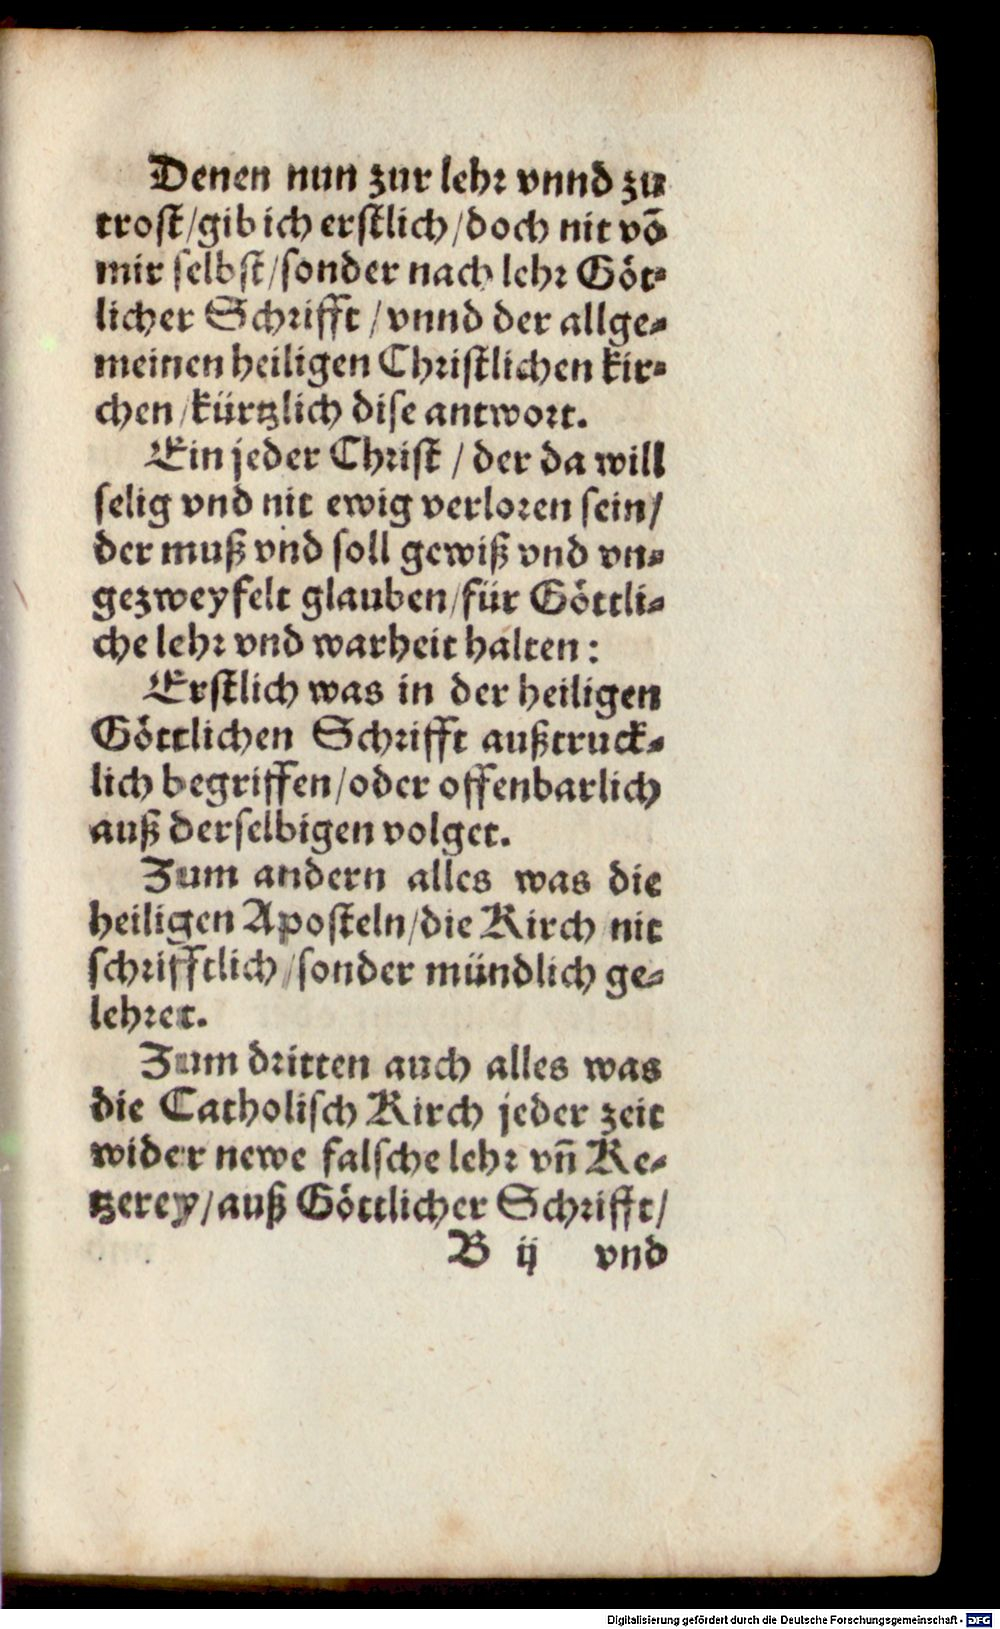 Denen nun zur lehr vnnd zu
trost/gib ich erstlich/doch nit võ
mir selbst/sonder nach lehr Göt-
licher Schrifft/vnnd der allge-
meinen heiligen Christlichen kir-
chen/kürtzlich dise antwort.
Ein jeder Christ/der da will
selig vnd nit ewig verloren sein/
der muß vnd soll gewiß vnd vn-
gezweyfelt glauben/für Göttli-
che lehr vnd warheit halten:
Erstlich was in der heiligen
Göttlichen Schrifft außtruck-
lich begriffen/oder offenbarlich
auß derselbigen volget.
Zum andern alles was die
heiligen Aposteln/die Kirch nit
schrifftlich/sonder mündlich ge-
lehret.
Zum dritten auch alles was
die Catholisch Kirch jeder zeit
wider newe falsche lehr vñ Ke-
tzerey/auß Göttlicher Schrifft/
B ij vnd
Digitalisierung gefördert durch die Deutsche Forschungsgemeinschaft - DFG